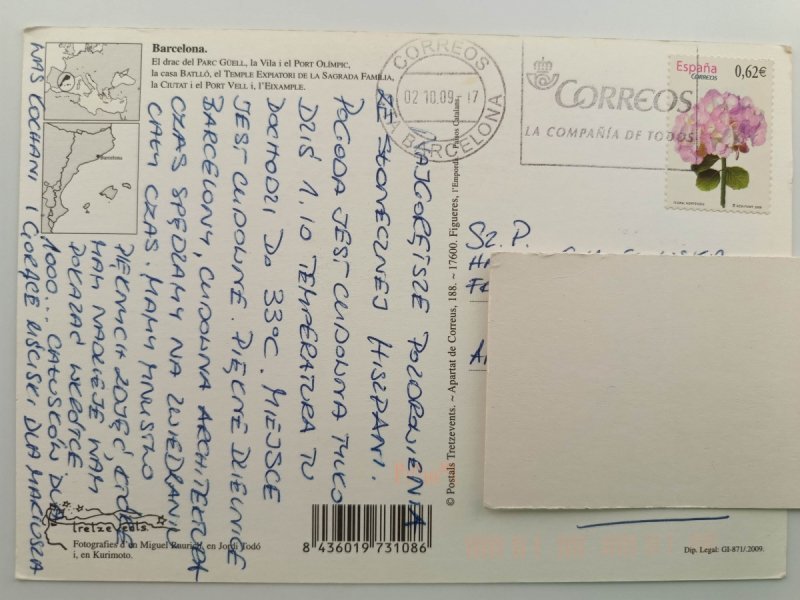 Barcelona.
El drac del PARC GÜELL, la Vila i el PORT OLÍMPIC,
la casa BATLLÓ, el TEMPLE EXPIATORI DE LA SAGRADA FAMÍLIA,
la CIUTAT i el PORT VELL i, l'EIXAMPLE.
Barcelona
CORREOS
02 10 09 - 17
BARCELONA
CORREOS
LA COMPAÑÍA DE TODOS
España
CORREOS
0,62€
NAJGORĘTSZE POZDROWIENIA
ZE SŁONECZNEJ HISZPANI.
POGODA JEST CUDOWNA TYLKO
DZIŚ 1.10 TEMPERATURA TU
DOCHODZI DO 33°C. MIEJSCE
JEST CUDOWNE. PIĘKNE DZIELNICE
BARCELONY, CUDOWNA ARCHITEKTURA
CZAS SPĘDZAMY NA ZWIEDZANIU
CAŁY CZAS. MAMY MNÓSTWO
PIĘKNYCH ZDJĘĆ, KTÓRE
MAM NADZIEJĘ WAM
POKAZAĆ WKRÓTCE
1000... CAŁUSKÓW DLA
WAS KOCHANI I GORĄCE UŚCISKI DLA MARIUSZA
© Postals Tretzevents. ~ Apartat de Correus, 188. ~ 17600. Figueres, l'Empordà - Països Catalans
SZ. P.
tretzevents.
Fotografies d'en Miquel Raurich, en Jordi Todó
i, en Kurimoto.
8 436019 731086
Dip. Legal: GI-871/.2009.